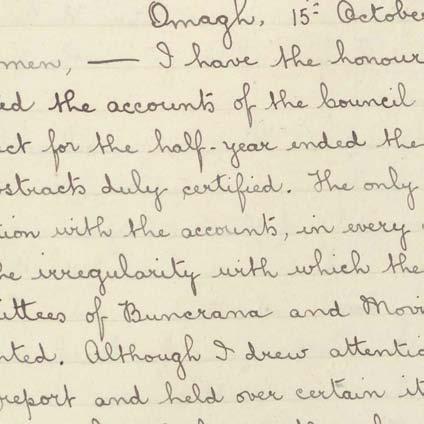 Omagh, 15th October
men, — I have the honour
ed the accounts of the Council
ct for the half-year ended the
stracts duly certified. The only
tion with the accounts, in every
he irregularity with which the
ittees of Buncrana and Movi
nted. Although I drew attentio
report and held over certain it